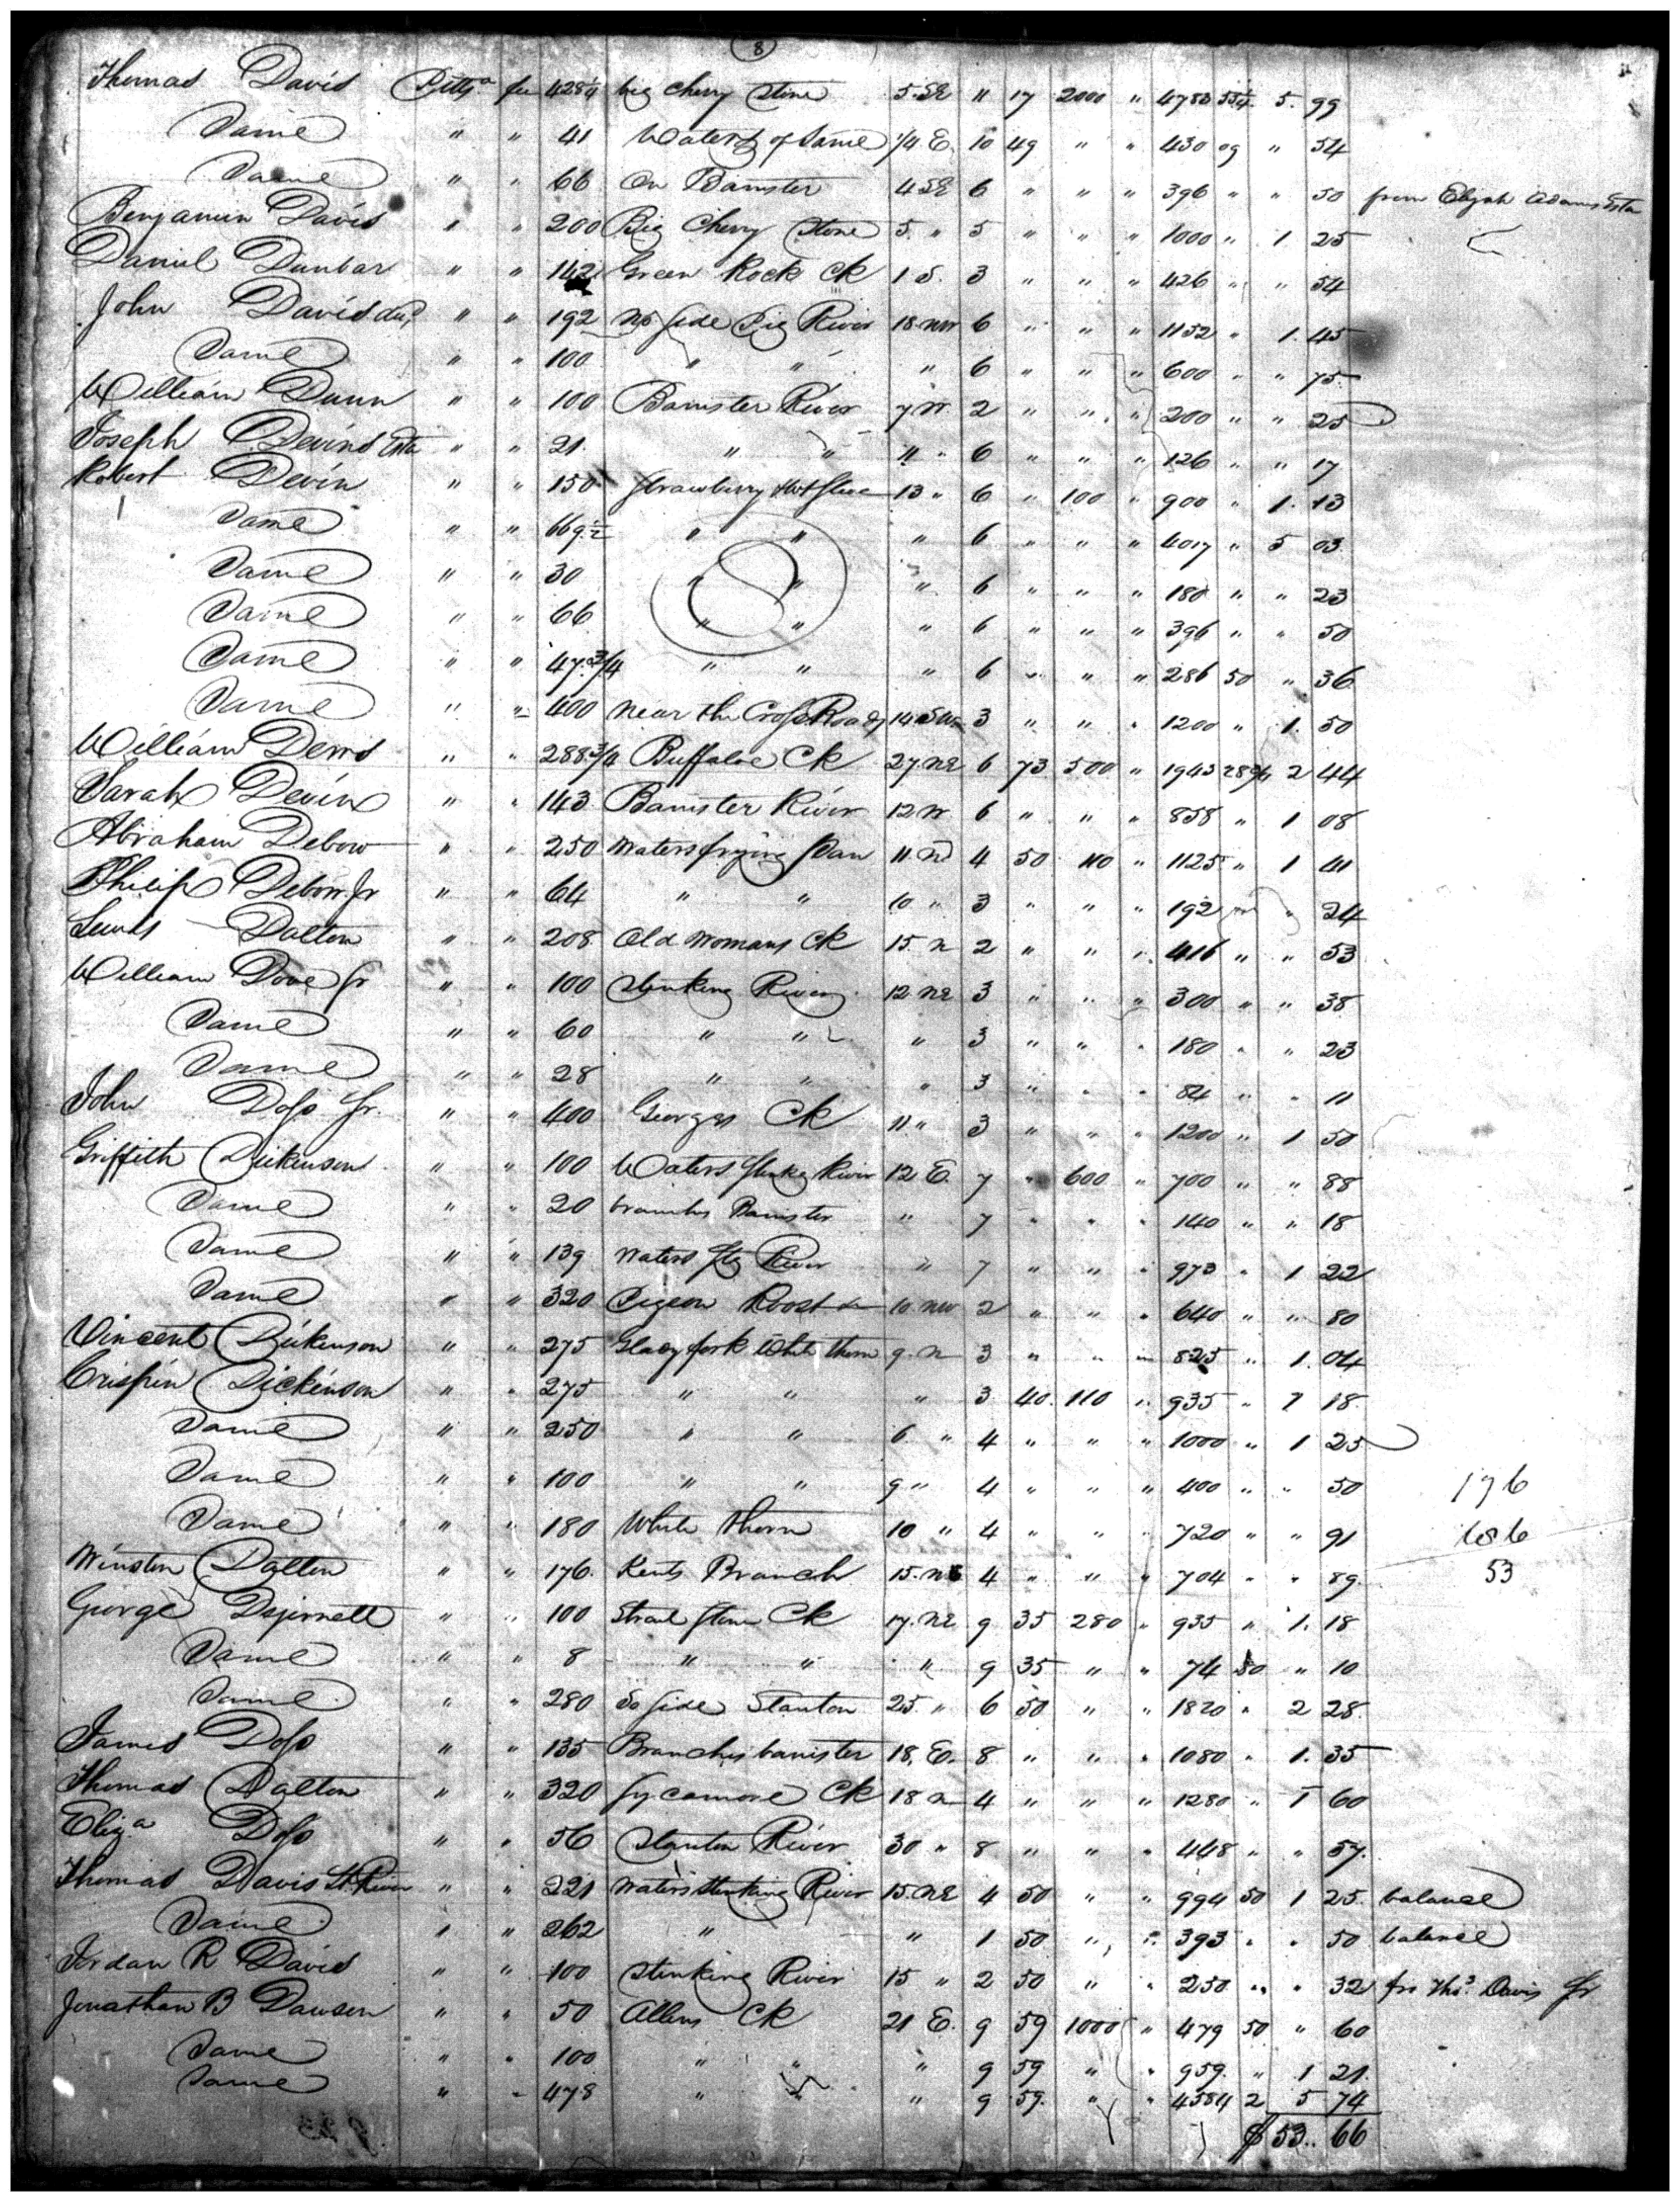 8
Thomas Davis Pittsa fee 428 1/4 big Cherry Stone 5. SE 11 17 2000 " 4783 55 1/4 5. 99
Same " " 41 Waters of Same 1/4 E. 10 49 " " 430 09 " 54
Same " " 66 On Banister 4 SE 6 " " " 396 " " 50 from Elijah Adams Esta
Benjamin Davis " " 200 Big Cherry Stone 5. " 5 " " " 1000 " 1 25
Daniel Dunbar " " 142 Green Rock Ck 1 S. 3 " " " 426 " " 54
John Davis " " 192 No side Pig River 18 NW 6 " " " 1152 " 1. 45
Same " " 100 " " " 6 " " " 600 " " 75
William Dunn " " 100 Banister River 7 W 2 " " " 200 " " 25
Joseph Devins Esta " " 21 " " 11 " 6 " " " 126 " " 17
Robert Devin " " 150 Strawberry 13 " 6 " 100 " 900 " 1. 13
Same " " 669 1/2 " " " 6 " " " 4017 " 5 03
Same " " 30 " " " 6 " " " 180 " " 23
Same " " 66 " " " 6 " " " 396 " " 50
Same " " 47 3/4 " " " 6 " " " 286 50 " 36
Same " " 400 Near the Cross Roads 14 SW 3 " " " 1200 " 1. 50
William Devis " " 288 3/4 Buffaloe Ck 27 NE 6 73 500 " 1943 28 3/4 2 44
Sarah Devin " " 143 Banister River 12 W 6 " " " 858 " 1 08
Abraham Debow " " 250 Waters frying Pan 11 N 4 50 110 " 1125 " 1 41
Philip Debow Jr " " 64 " " 10 " 3 " " " 192 " " 24
Lewis Dalton " " 208 Old Womans Ck 15 N 2 " " " 416 " " 53
William Dove Jr " " 100 Stinking River 12 NE 3 " " " 300 " " 38
Same " " 60 " " " 3 " " " 180 " " 23
Same " " 28 " " " 3 " " " 84 " " 11
John Doss Jr. " " 400 Georges Ck 11 " 3 " " " 1200 " 1 50
Griffith Dickinson " " 100 Waters Stinkg River 12 E. 7 " 600 " 700 " " 88
Same " " 20 branches Banister " 7 " " " 140 " " 18
Same " " 139 Waters Stg River " 7 " " " 973 " 1 22
Same " " 320 Pigeon Roost 10 NW 2 " " " 640 " " 80
Vincent Dickenson " " 275 Glady fork White thorn 9 N 3 " " " 825 " 1. 04
Crispin Dickenson " " 275 " " " 3 40 110 " 935 " 1 18
Same " " 250 " " 6 " 4 " " " 1000 " 1 25
Same " " 100 " " 9 " 4 " " " 400 " " 50 176
Same " " 180 White thorn 10 " 4 " " " 720 " " 91 686
Winston Dalton " " 176 Kents Branch 15 NE 4 " " " 704 " " 89 53
George Dejernett " " 100 Strait Stone Ck 17 NE 9 35 280 " 935 " 1. 18
Same " " 8 " " " 9 35 " " 74 80 " 10
Same " " 280 So side Stanton 25 " 6 50 " " 1820 " 2 28
James Doss " " 135 Branches banister 18 E. 8 " " " 1080 " 1. 35
Thomas Dalton " " 320 Sycamore Ck 18 N 4 " " " 1280 " 1 60
Eliza Doss " " 56 Stanton River 30 " 8 " " " 448 " " 57
Thomas Davis St. River " " 221 Waters Stinking River 15 NE 4 50 " " 994 50 1 25 balance
Same " " 262 " " 1 50 " " 393 " " 50 balance
Jordan R Davis " " 100 Stinking River 15 " 2 50 " " 250 " " 32 fro Thos Davis Jr
Jonathan B Dawson " " 50 Allens Ck 21 E. 9 59 1000 " 479 50 " 60
Same " " 100 " " " 9 59 " " 959 " 1 21
Same " " 478 " " " 9 59 " " 4584 2 5 74
$53.. 66